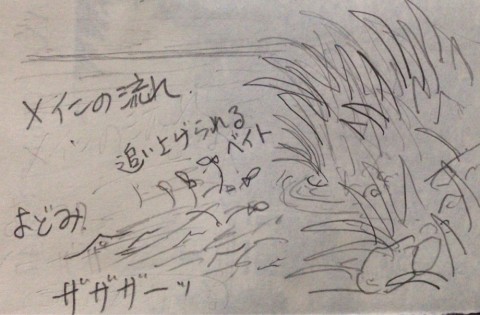 メインの流れ
追い上げられる
ベイト
よどみ
ザザガーッ